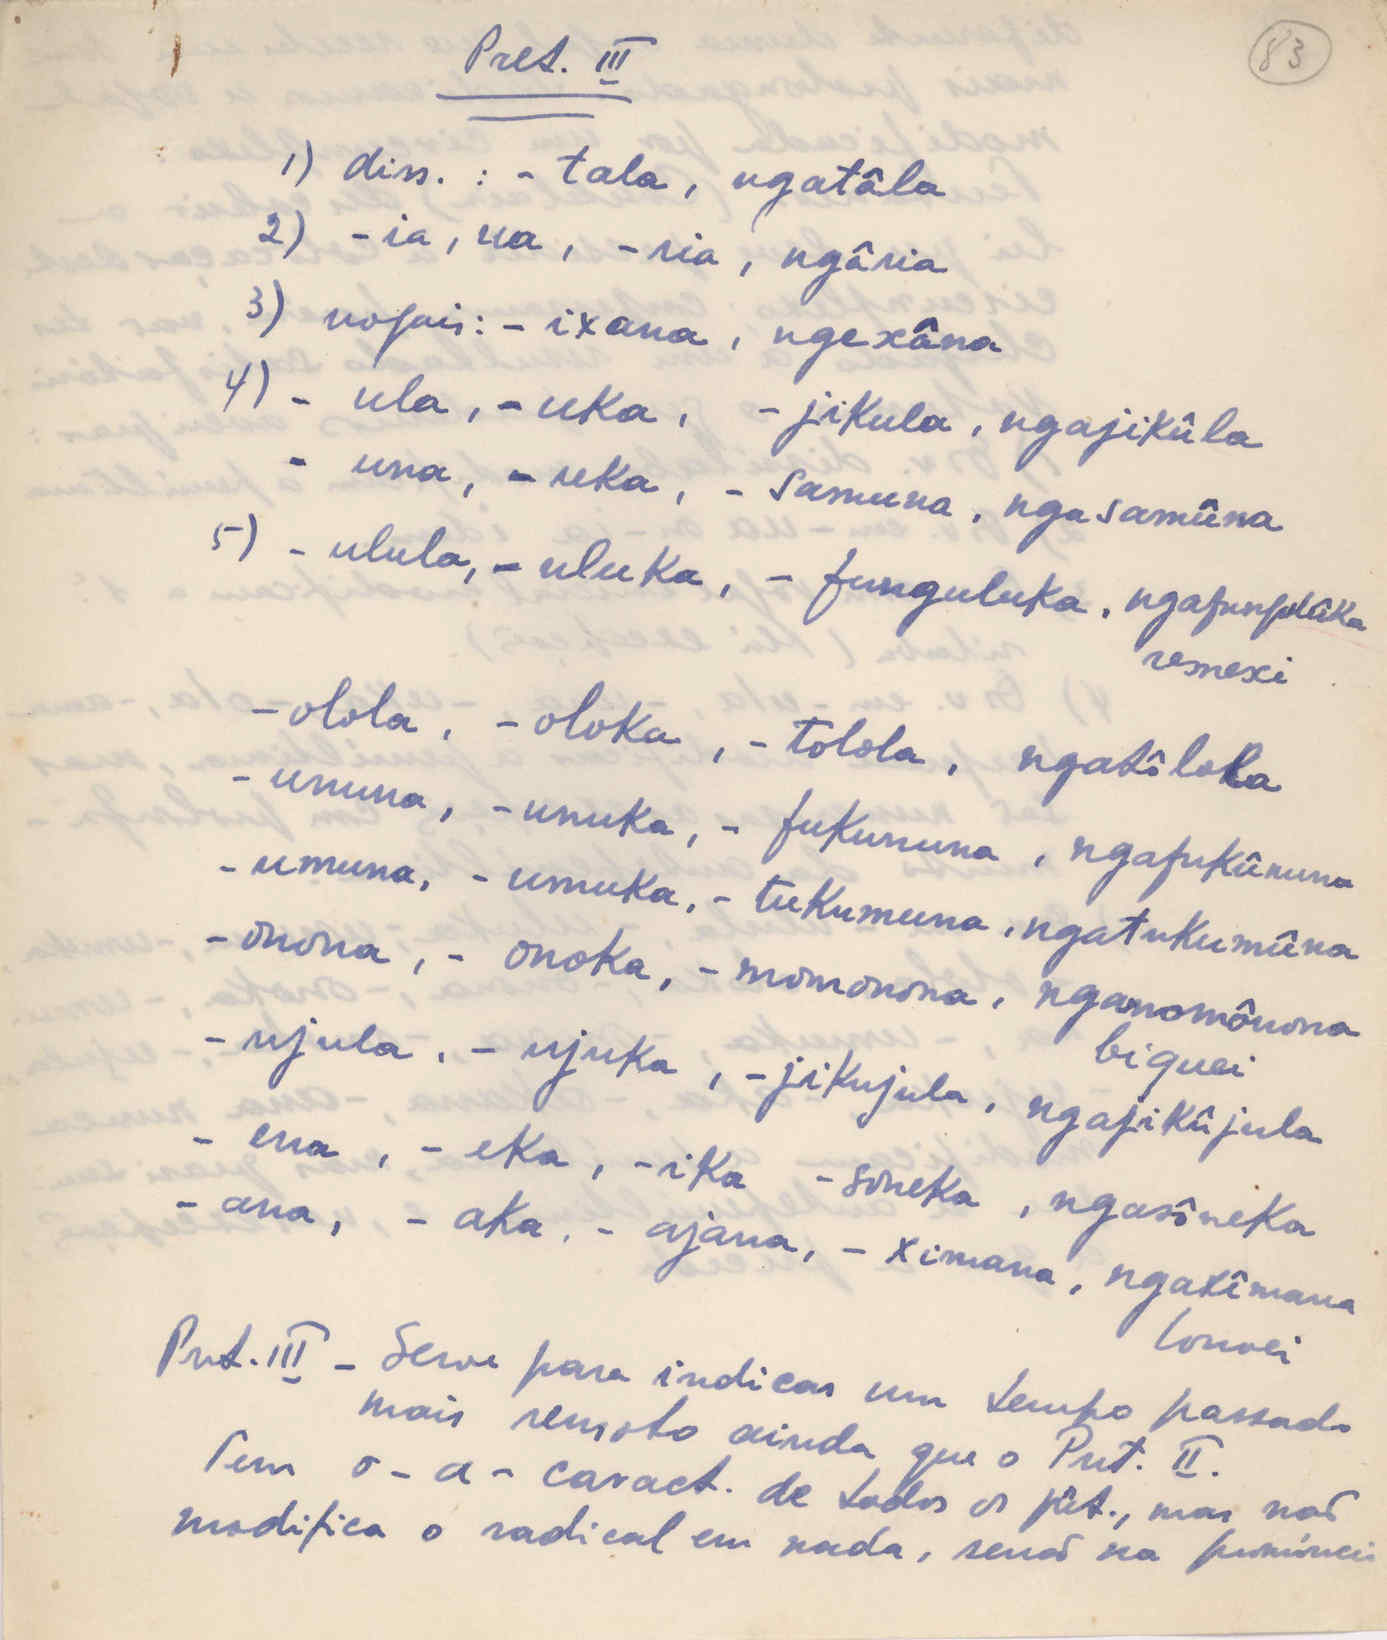 83
Pret. III
1) diss. : - tala, ngatâla
2) - ia, ua, - ria, ngâria
3) vogais: - ixana, ngexâna
4) - ula, - uka, - jikula, ngajikûla
- una, - uka, - samuna, ngasamûna
5) - ulula, - uluka, - funguluka, ngafungulûka
remexi
- olola, - oloka, - tolola, ngatôlola
- ununa, - unuka, - fukununa, ngafukûnuna
- umuna, - umuka, - tukumuna, ngatukumûna
- onona, - onoka, - momonona, ngamomônona
biquei
- ujula, - ujuka, - jikujula, ngajikûjula
- ena, - eka, - ika - soneka, ngasôneka
- ana, - aka, - ajana, - ximana, ngaxîmana
louvei
Pret. III - Serve para indicar um tempo passado
mais remoto ainda que o Pret. II.
Tem o - a - caract. de todos os pret., mas não
modifica o radical em nada, senão na pronúncia